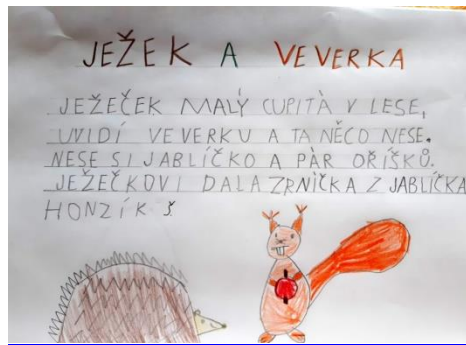 JEŽEK A VEVERKA
JEŽEČEK MALÝ CUPITÀ V LESE,
UVIDÍ VEVERKU A TA NĚCO NESE.
NESE SI JABLÍČKO A PÀR OŘÍŠKŮ.
JEŽEČKOVI DALA ZRNÌČKA Z JABLÍČKA
HONZÍK Š.